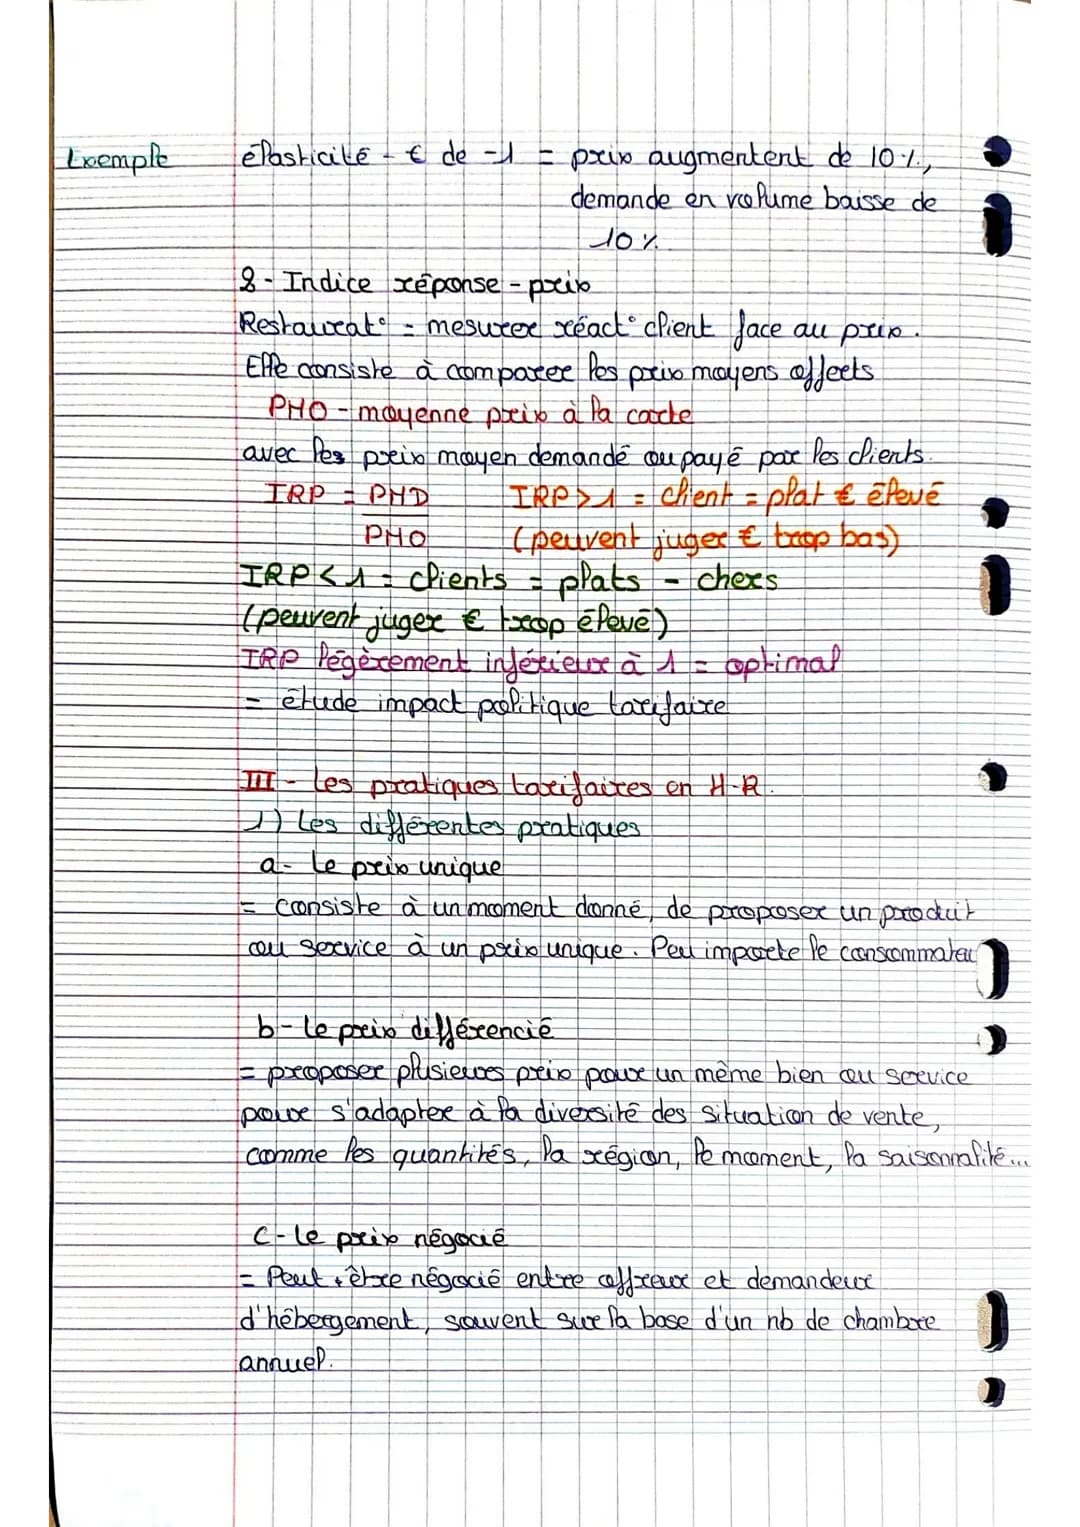 Exemple élasticité - € de -1 = prix augmentent de 10%,
demande en volume baisse de
10%.
8- Indice réponse - prix
Restaurat° = mesurer réact° client face au prix.
Elle consiste à comparer les prix moyens offerts
PHO - moyenne prix à la carte
avec les prix moyen demandé ou payé par les clients.
IRP = PHD IRP > 1 = client = plat € élevé
PHO (peuvent juger € trop bas)
IRP < 1 = clients = plats - chers
(peuvent juger € trop élevé)
IRP légèrement inférieur à 1 = optimal
= étude impact politique tarifaire
III - Les pratiques tarifaires en H-R.
1) Les différentes pratiques
a- Le prix unique
= consiste à un moment donné, de proposer un produit
ou service à un prix unique. Peu importe le consommateu
b- Le prix différencié
= proposer plusieurs prix pour un même bien ou service
pour s'adapter à la diversité des situation de vente,
comme les quantités, la région, le moment, la saisonnalité...
C- Le prix négocié
= Peut être négocié entre offreur et demandeur
d'hébergement, souvent sur la base d'un nb de chambre
annuel.